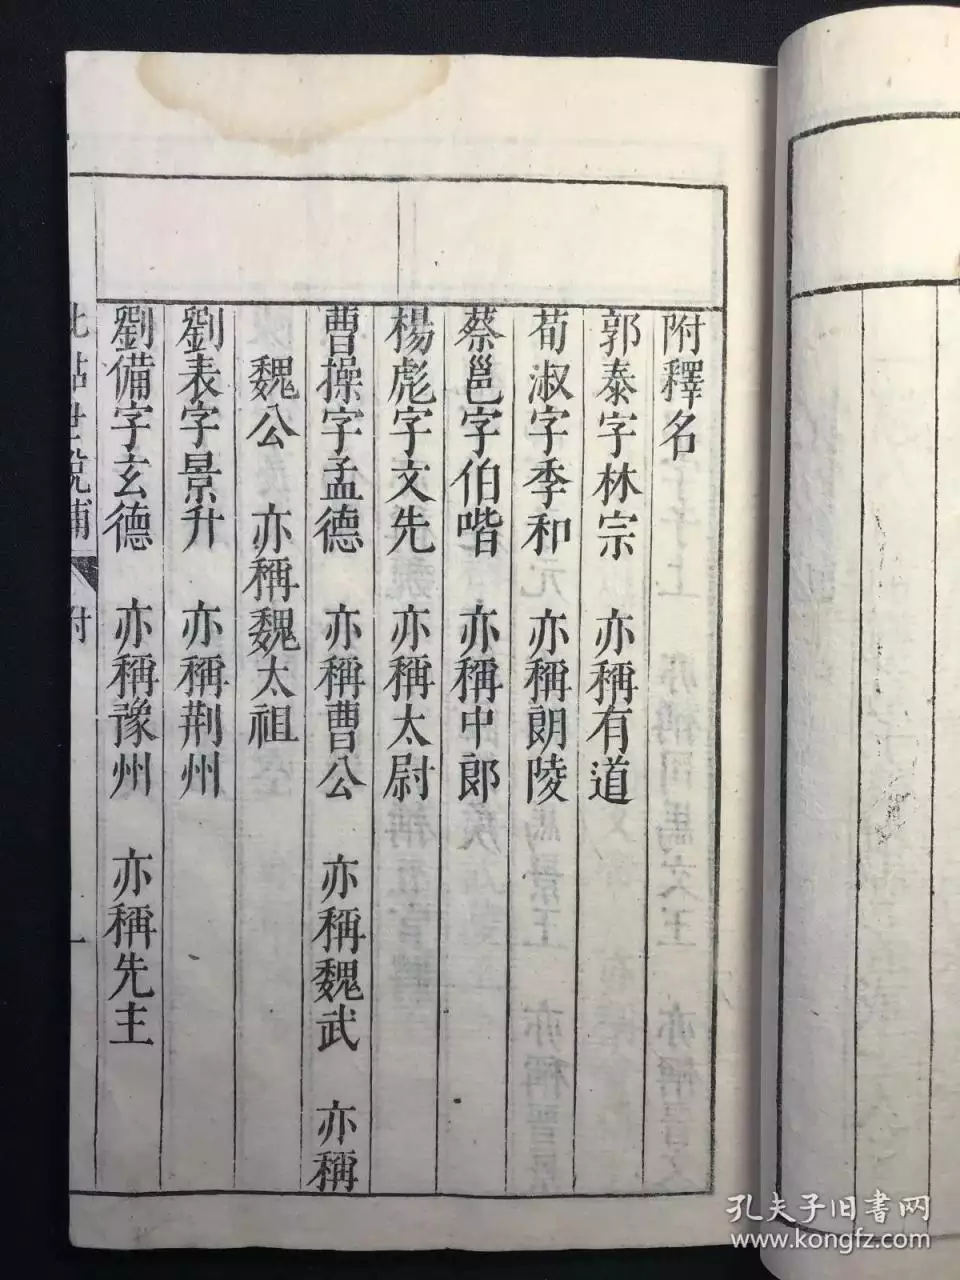 附釋名
郭泰字林宗　亦稱有道
荀淑字季和　亦稱朗陵
蔡邕字伯喈　亦稱中郎
楊彪字文先　亦稱太尉
曹操字孟德　亦稱曹公　亦稱魏武　亦稱
魏公　亦稱魏太祖
劉表字景升　亦稱荆州
劉備字玄德　亦稱豫州　亦稱先主
世說補　附　一
孔夫子旧书网
www.kongfz.com